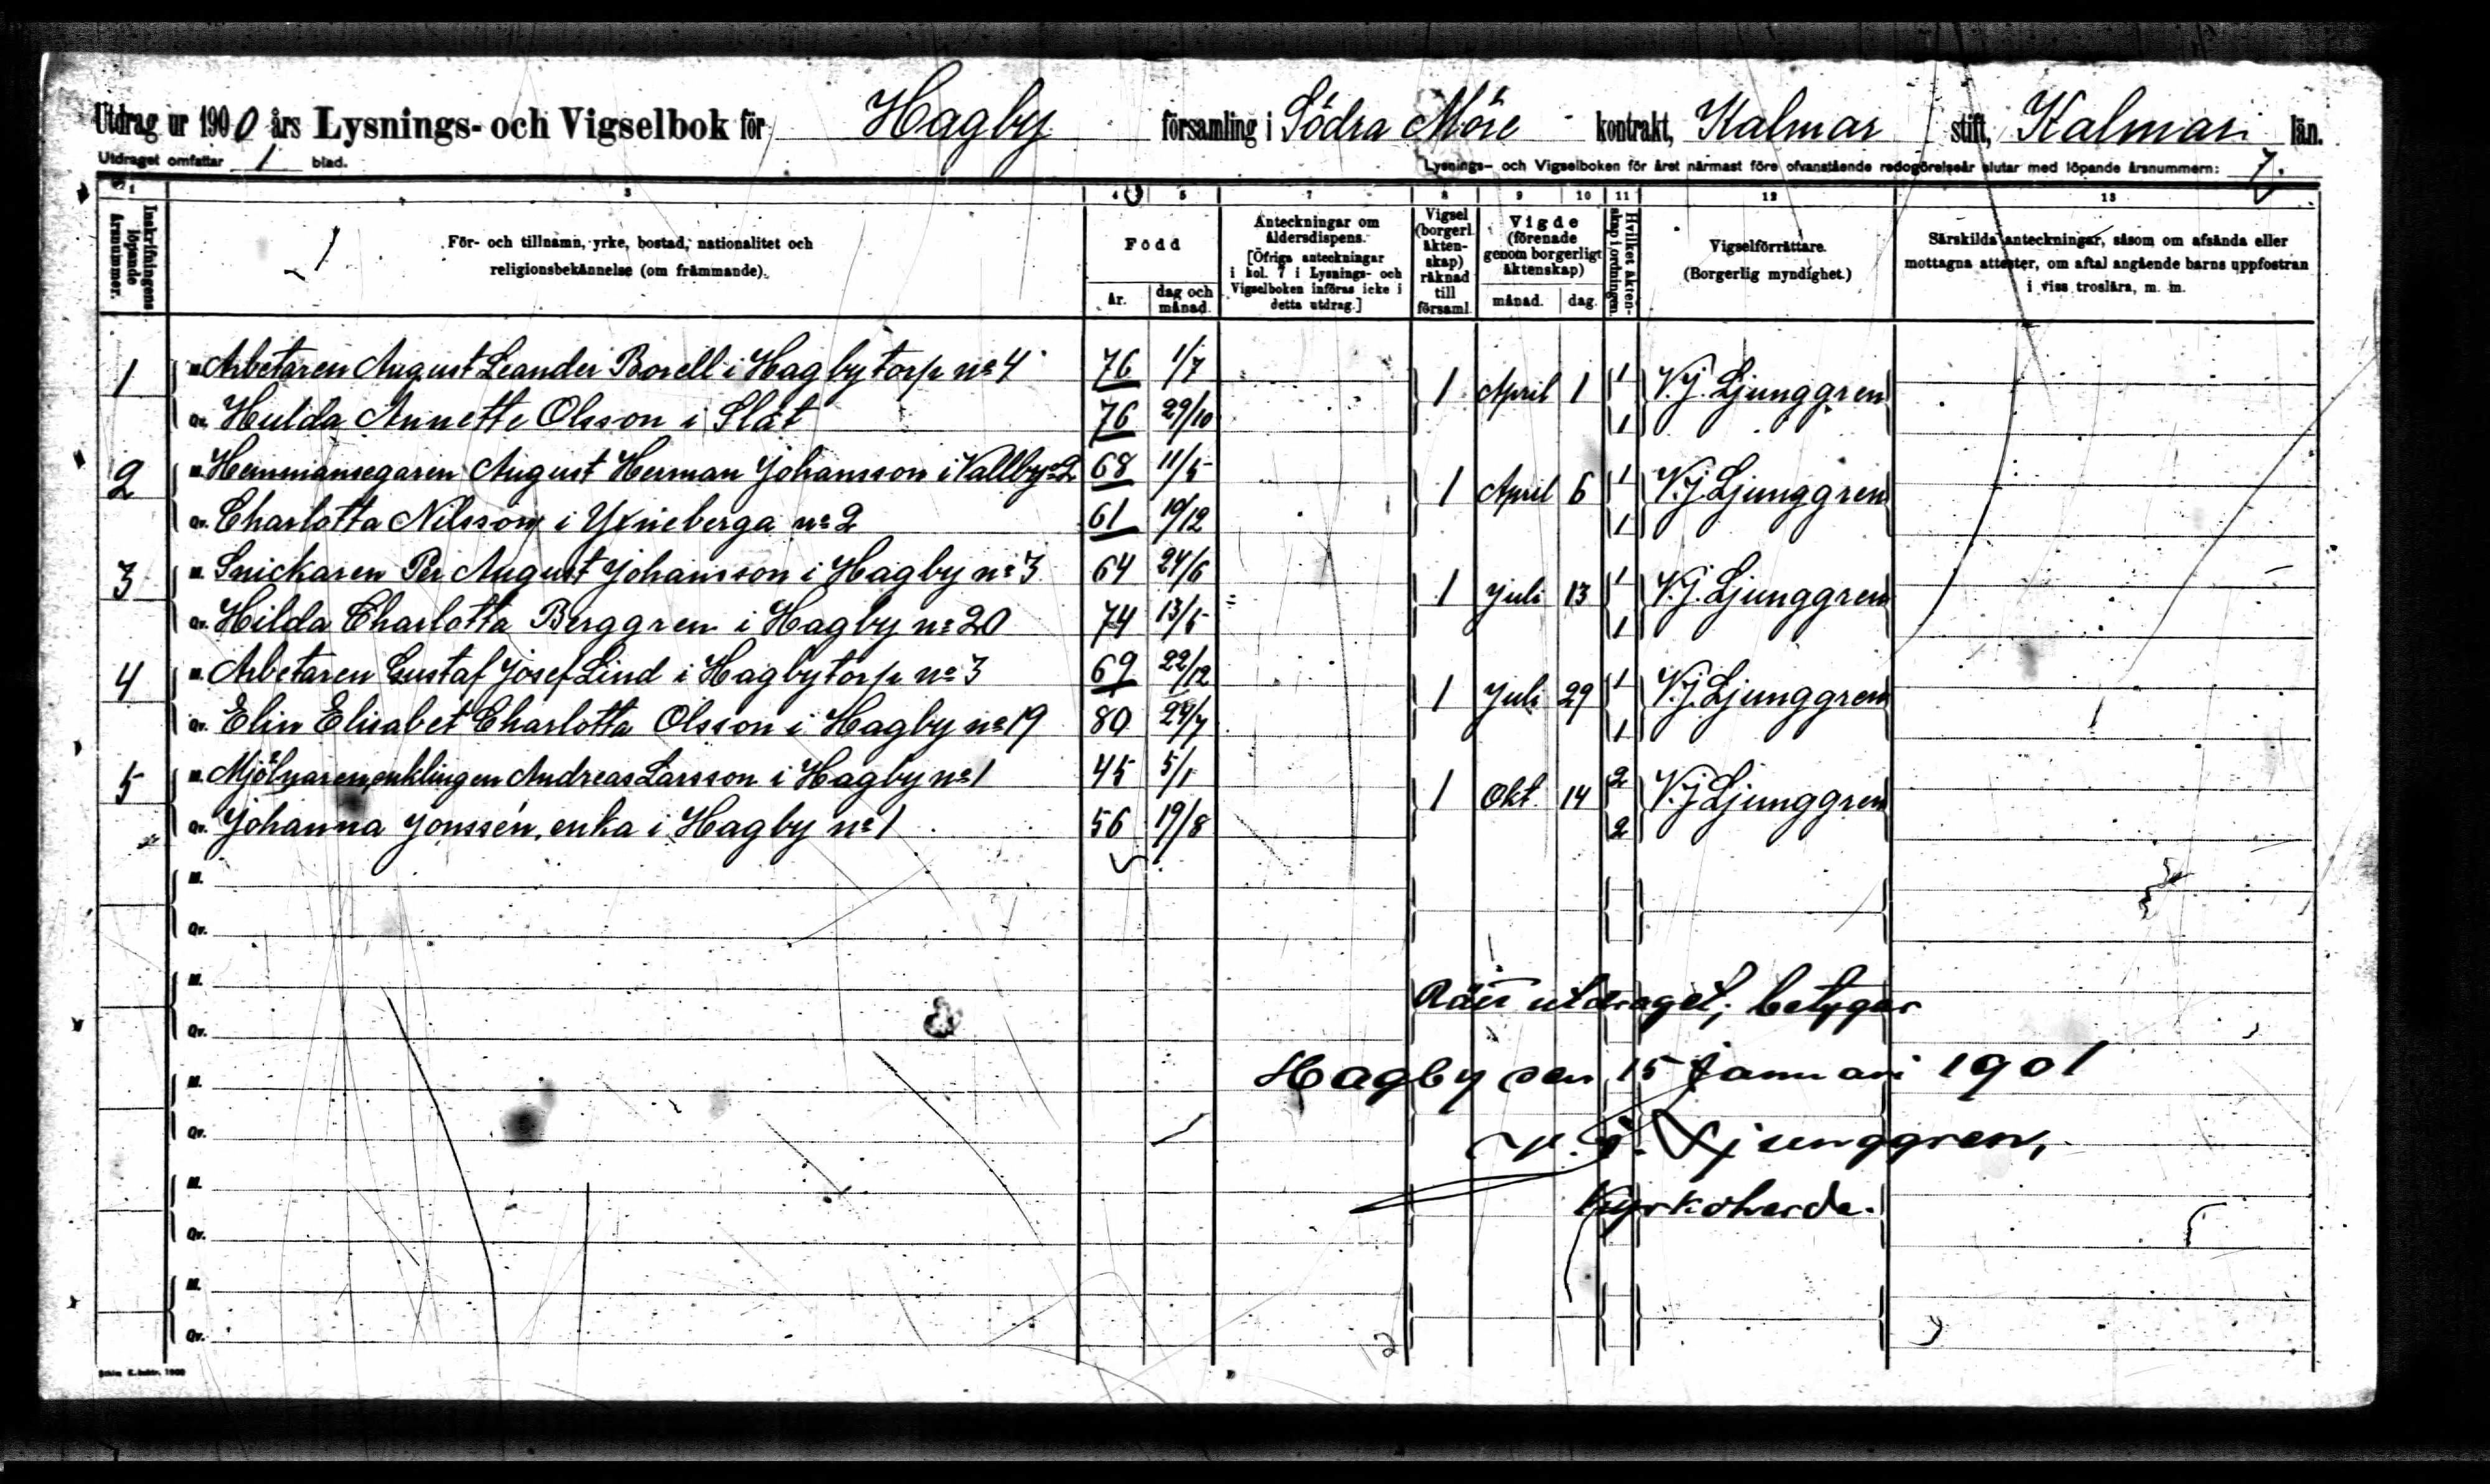 Utdrag ur 1900 års Lysnings- och Vigselbok för Hagby församling i Södra Möre kontrakt, Kalmar stift, Kalmar län.
Utdraget omfattar 1 blad.
Lysnings- och Vigselboken för året närmast före ofvanstående redogörelseår slutar med löpande årsnummern: 7.
1 3 4 5 7 8 9 10 11 12 13
Inskrifningens löpande årsnummer.
För- och tillnamn, yrke, bostad, nationalitet och
religionsbekännelse (om främmande).
Född
år.
dag och
månad.
Anteckningar om
åldersdispens.
[Öfriga anteckningar
i kol. 7 i Lysnings- och
Vigselboken införas icke i
detta utdrag.]
Vigsel
(borgerl.
äkten-
skap)
räknad
till
församl.
Vigde
(förenade
genom borgerligt
äktenskap)
månad.
dag.
Hvilket äkten-
skap i ordningen.
Vigselförrättare.
(Borgerlig myndighet.)
Särskilda anteckningar, såsom om afsända eller
mottagna attester, om aftal angående barns uppfostran
i viss troslära, m. m.
1 M. Arbetaren August Leander Borell i Hagbytorp no 4 76 1/7 1 April 1 1 V. J. Ljunggren
Qv. Hulda Annette Olsson i Slät 76 29/10 1
2 M. Hemmansegaren August Herman Johansson i Vallby no 2 68 11/5 1 April 6 1 V. J. Ljunggren
Qv. Charlotta Nilsson i Yxneberga no 2 61 19/12 1
3 M. Snickaren Per August Johansson i Hagby no 3 64 24/6 1 Juli 13 1 V. J. Ljunggren
Qv. Hilda Charlotta Berggren i Hagby no 20 74 13/5 1
4 M. Arbetaren Gustaf Josef Lind i Hagbytorp no 3 69 22/12 1 Juli 29 1 V. J. Ljunggren
Qv. Elin Elisabet Charlotta Olsson i Hagby no 19 80 24/7 1
5 M. Mjölnaren, enklingen Andreas Larsson i Hagby no 1 45 5/1 1 Okt. 14 2 V. J. Ljunggren
Qv. Johanna Jonssén, enka i Hagby no 1 56 19/8 2
M.
Qv.
M.
Qv.
M.
Qv.
M.
Qv.
M.
Qv.
utdraget, betygar
Hagby den 15 januari 1901
V. J. Ljunggren,
Kyrkoherde.
1900